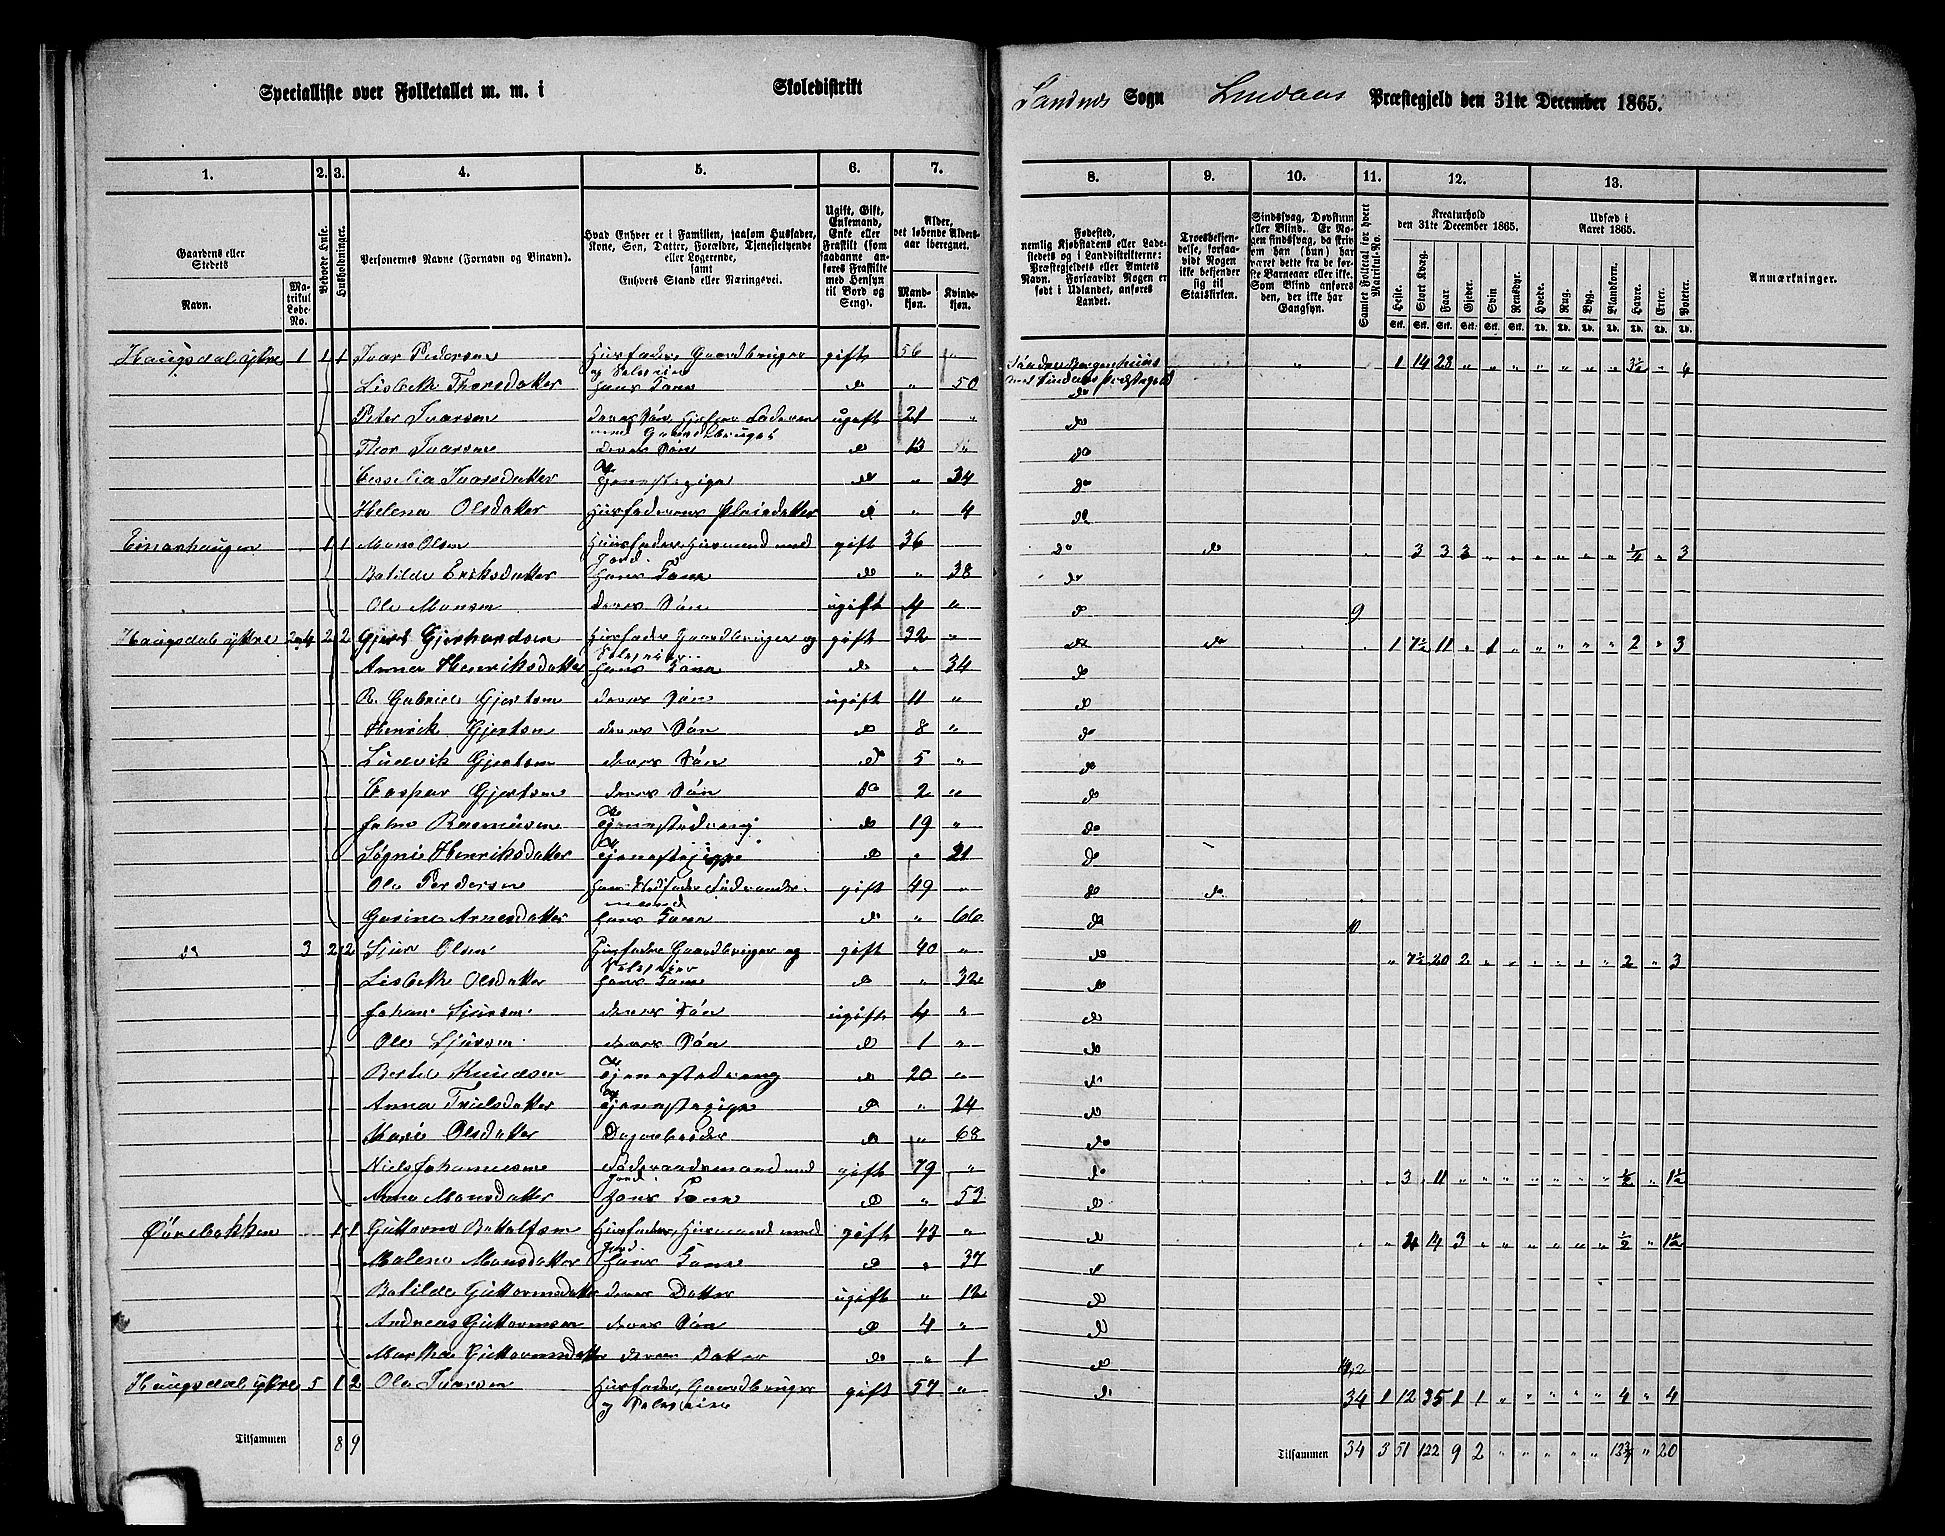 Specialliste over Folketallet m. m. i Skoledistrikt
Sandnes Sogn Lindaas Præstegjeld den 31te December 1865.
1. 2. 3. 4. 5. 6. 7.
8. 9. 10. 11. 12. 13.
Gaardenes eller Stedets
Navn.
Matrikul Løbe-No.
Beboede Huse.
Husholdninger.
Personernes Navne (Fornavn og Binavn).
Hvad Enhver er i Familien, saasom Husfader, Kone, Søn, Datter, Forældre, Tjenestetyende eller Logerende, samt Enhvers Stand eller Næringsvei.
Ugift, Gift, Enkemand, Enke eller Fraskilt (som saadanne anføres Fraskilte med Hensyn til Bord og Seng).
Alder, det løbende Alders-aar iberegnet.
Mandkjøn. Kvindekjøn.
Fødested, nemlig Kjøbstadens eller Ladestedets og i Landdistrikterne: Præstegjeldets eller Amtets Navn. Forsaavidt Nogen er født i Udlandet, anføres Landet.
Troesbekjendelse, forsaavidt Nogen ikke bekjender sig til Statskirken.
Sindssvag, Døvstum eller Blind. Er Nogen sindssvag, da skrives om han (hun) har været dette fra de første Barneaar eller ikke. Som Blind anføres den, der ikke har Gangsyn.
Samlet Folketal for hvert Matrikul-No.
Kreaturhold den 31te December 1865.
Heste. Stort Kvæg. Faar. Gjeder. Svin. Rensdyr.
Udsæd i Aaret 1865.
Hvede. Rug. Byg. Blandkorn. Havre. Erter. Poteter.
Anmærkninger.
Haugsdal ytre 1 1 1 Ivar Pedersen Husfader, Gaardbruger og Selveier gift 56 " Søndre Bergenhuus Amt Lindaas Præstegjeld 1 14 28 " " " " " " " 3½ " 4
Lisbeth Thorsdatter Hans Kone do " 50 do
Peter Ivarsen deres Søn, hjelper Faderen med Gaardsbruget ugift 21 " do
Thor Ivarsen deres Søn do 13 " do
Cesselia Ivarsdatter Tjenestepige do " 34 do
Helena Olsdatter Husfaderens Pleiedatter do " 4 do
Einarhaugen 1 1 Mons Olsen Husfader, Husmand med Jord gift 36 do do 3 3 2 " " " " " " ¼ " 3
Batilde Eriksdatter Hans Kone do " 38 do
Ole Monsen deres Søn ugift 4 " do 9
Haugsdal ytre 2 2 Gjert Gjerhardsen Husfader Gaardbruger og Selveier gift 32 " do do 1 7½ 11 " 1 " " " " " 2 " 3
Anna Henriksdatter Hans Kone do " 34 do
R. Gabriel Gjertsen deres Søn ugift 11 " do
Henrik Gjertsen deres Søn do 8 " do
Ludvik Gjertsen deres Søn do 5 " do
Caspar Gjertsen deres Søn do 2 " do
Johns Rasmusen Tjenestedreng do 19 " do
Søgnie Henriksdatter Tjenestepige do " 21 do
Ole Pedersen gift 49 " do do
Gurine Arnesdatter Hans Kone do " 66 do 10
do 3 2 2 Sjur Olsen Husfader Gaardbruger og Selveier gift 40 " do " 7½ 20 2 " " " " " " 2 " 3
Lisbeth Olsdatter Hans Kone do " 32 do
Johan Sjursen deres Søn ugift 4 " do
Ole Sjursen deres Søn do 1 " do
Bertel Knudsen Tjenestedreng do 20 " do
Anna Trielsdatter Tjenestepige do " 24 do
Kari Olsdatter do " 68 do
Niels Johannesen Føderaadsmand med Jord gift 79 " do 3 11 " " " " " " " ½ " 1½
Anna Monsdatter Hans Kone do " 53 do
Øvrebakken 1 1 Guttorm Bottolfsen Husfader, Husmand med Jord gift 43 " do 4 14 3 " " " " " " ½ " 1½
Malene Monsdatter Hans Kone do " 37 do
Batilde Guttormsdatter deres Datter ugift " 12 do
Andreas Guttormsen deres Søn do 4 " do
Martha Guttormsdatter deres Datter do " 1 do
Haugsdal ytre 5 1 2 Ole Ivarsen Husfader, Gaardbruger og Selveier gift 57 " do 34 1 12 35 1 1 " " " " " 4 " 4
Tilsammen 8 9
Tilsammen 34 3 51 122 9 2 " " " " " 12¾ " 20